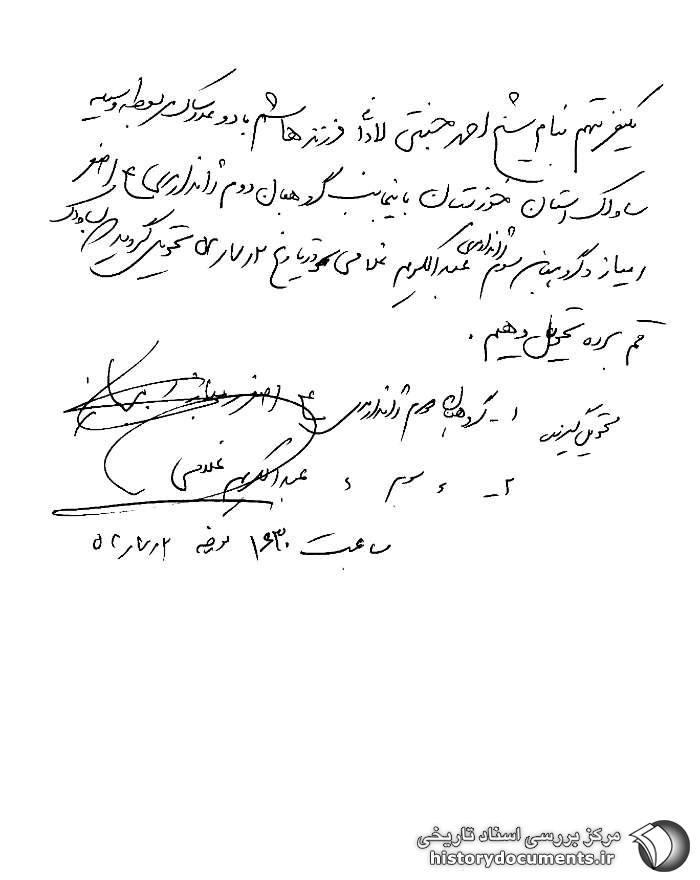 یکنفر متهم بنام شیخ احمد جنتی لادانی فرزند هاشم با دو عدد ساک مربوطه وسیله
ساواک استان خوزستان باینجانب گروهبان دوم ژاندارمری ع اصغر
و گروهبان سوم ژاندارمری عبدالکریم غلامی در تاریخ ۵۲/۷/۲ تحویل گردید که بساواک
قم برده تحویل دهیم .
تحویل گیرنده ۱- گروهبان دوم ژاندارمری ع اصغر
۲- ء سوم ء عبدالکریم غلامی
ساعت ۱۶۳۰ مورخه ۵۲/۷/۲
مرکز بررسی اسناد تاریخی
historydocuments.ir